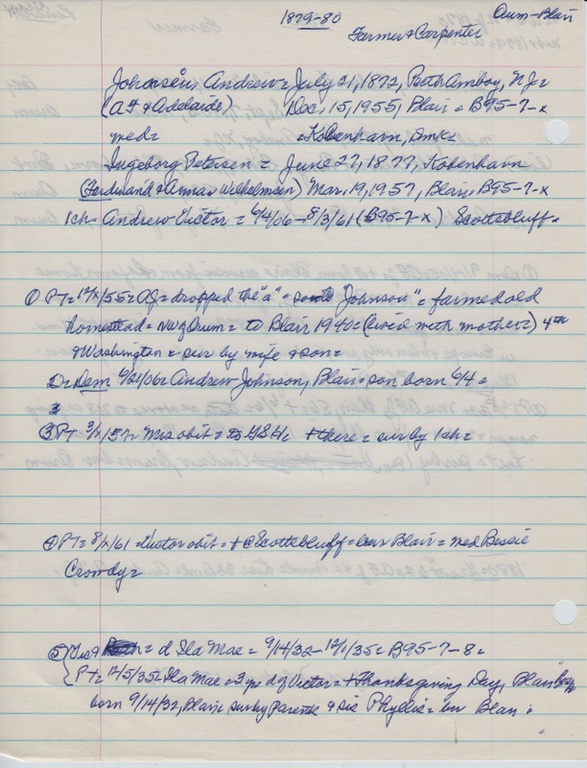 1879-80
Orum-Blair
Farmer & Carpenter
Johansen, Andrew = July 21, 1872, Perth Amboy, NJ =
(A.F. & Adelaide) Dec. 15, 1955, Blair = B95-7-x
med = = Kobenharn, Dmk =
Ingeborg Petersen = June 27, 1877, Kobenharn
(Ferdinand & Anna Wilhelmsen) Mar. 19, 1957, Blair, B95-7-x
1ch = Andrew Victor = 6/4/06 - 8/3/61 (B95-7-x) Scottsbluff =
① PT = 12/x/55 = dropped the "a" = Johnson" = farmed old
homestead = NW of Orum = to Blair 1940 = (lived with mother) 4th
& Washington = sur by wife & son =
② Dem 6/21/06 = Andrew Johnson, Blair = son born 6/4 =
③ PT 3/x/57 = Mrs obit = there = sur by 1ch =
④ PT = 8/x/61 = Victor obit = + @ Scottsbluff = Blair = med Bessie
Crowdy =
⑤ = d Ila Mae = 9/14/32 - = B95-7-8 =
PT = 12/5/35 = Ila Mae = 3 yr d of Victor = + Thanksgiving Day, Blair
born 9/14/32, Blair = sur by Parents & sis Phyllis =